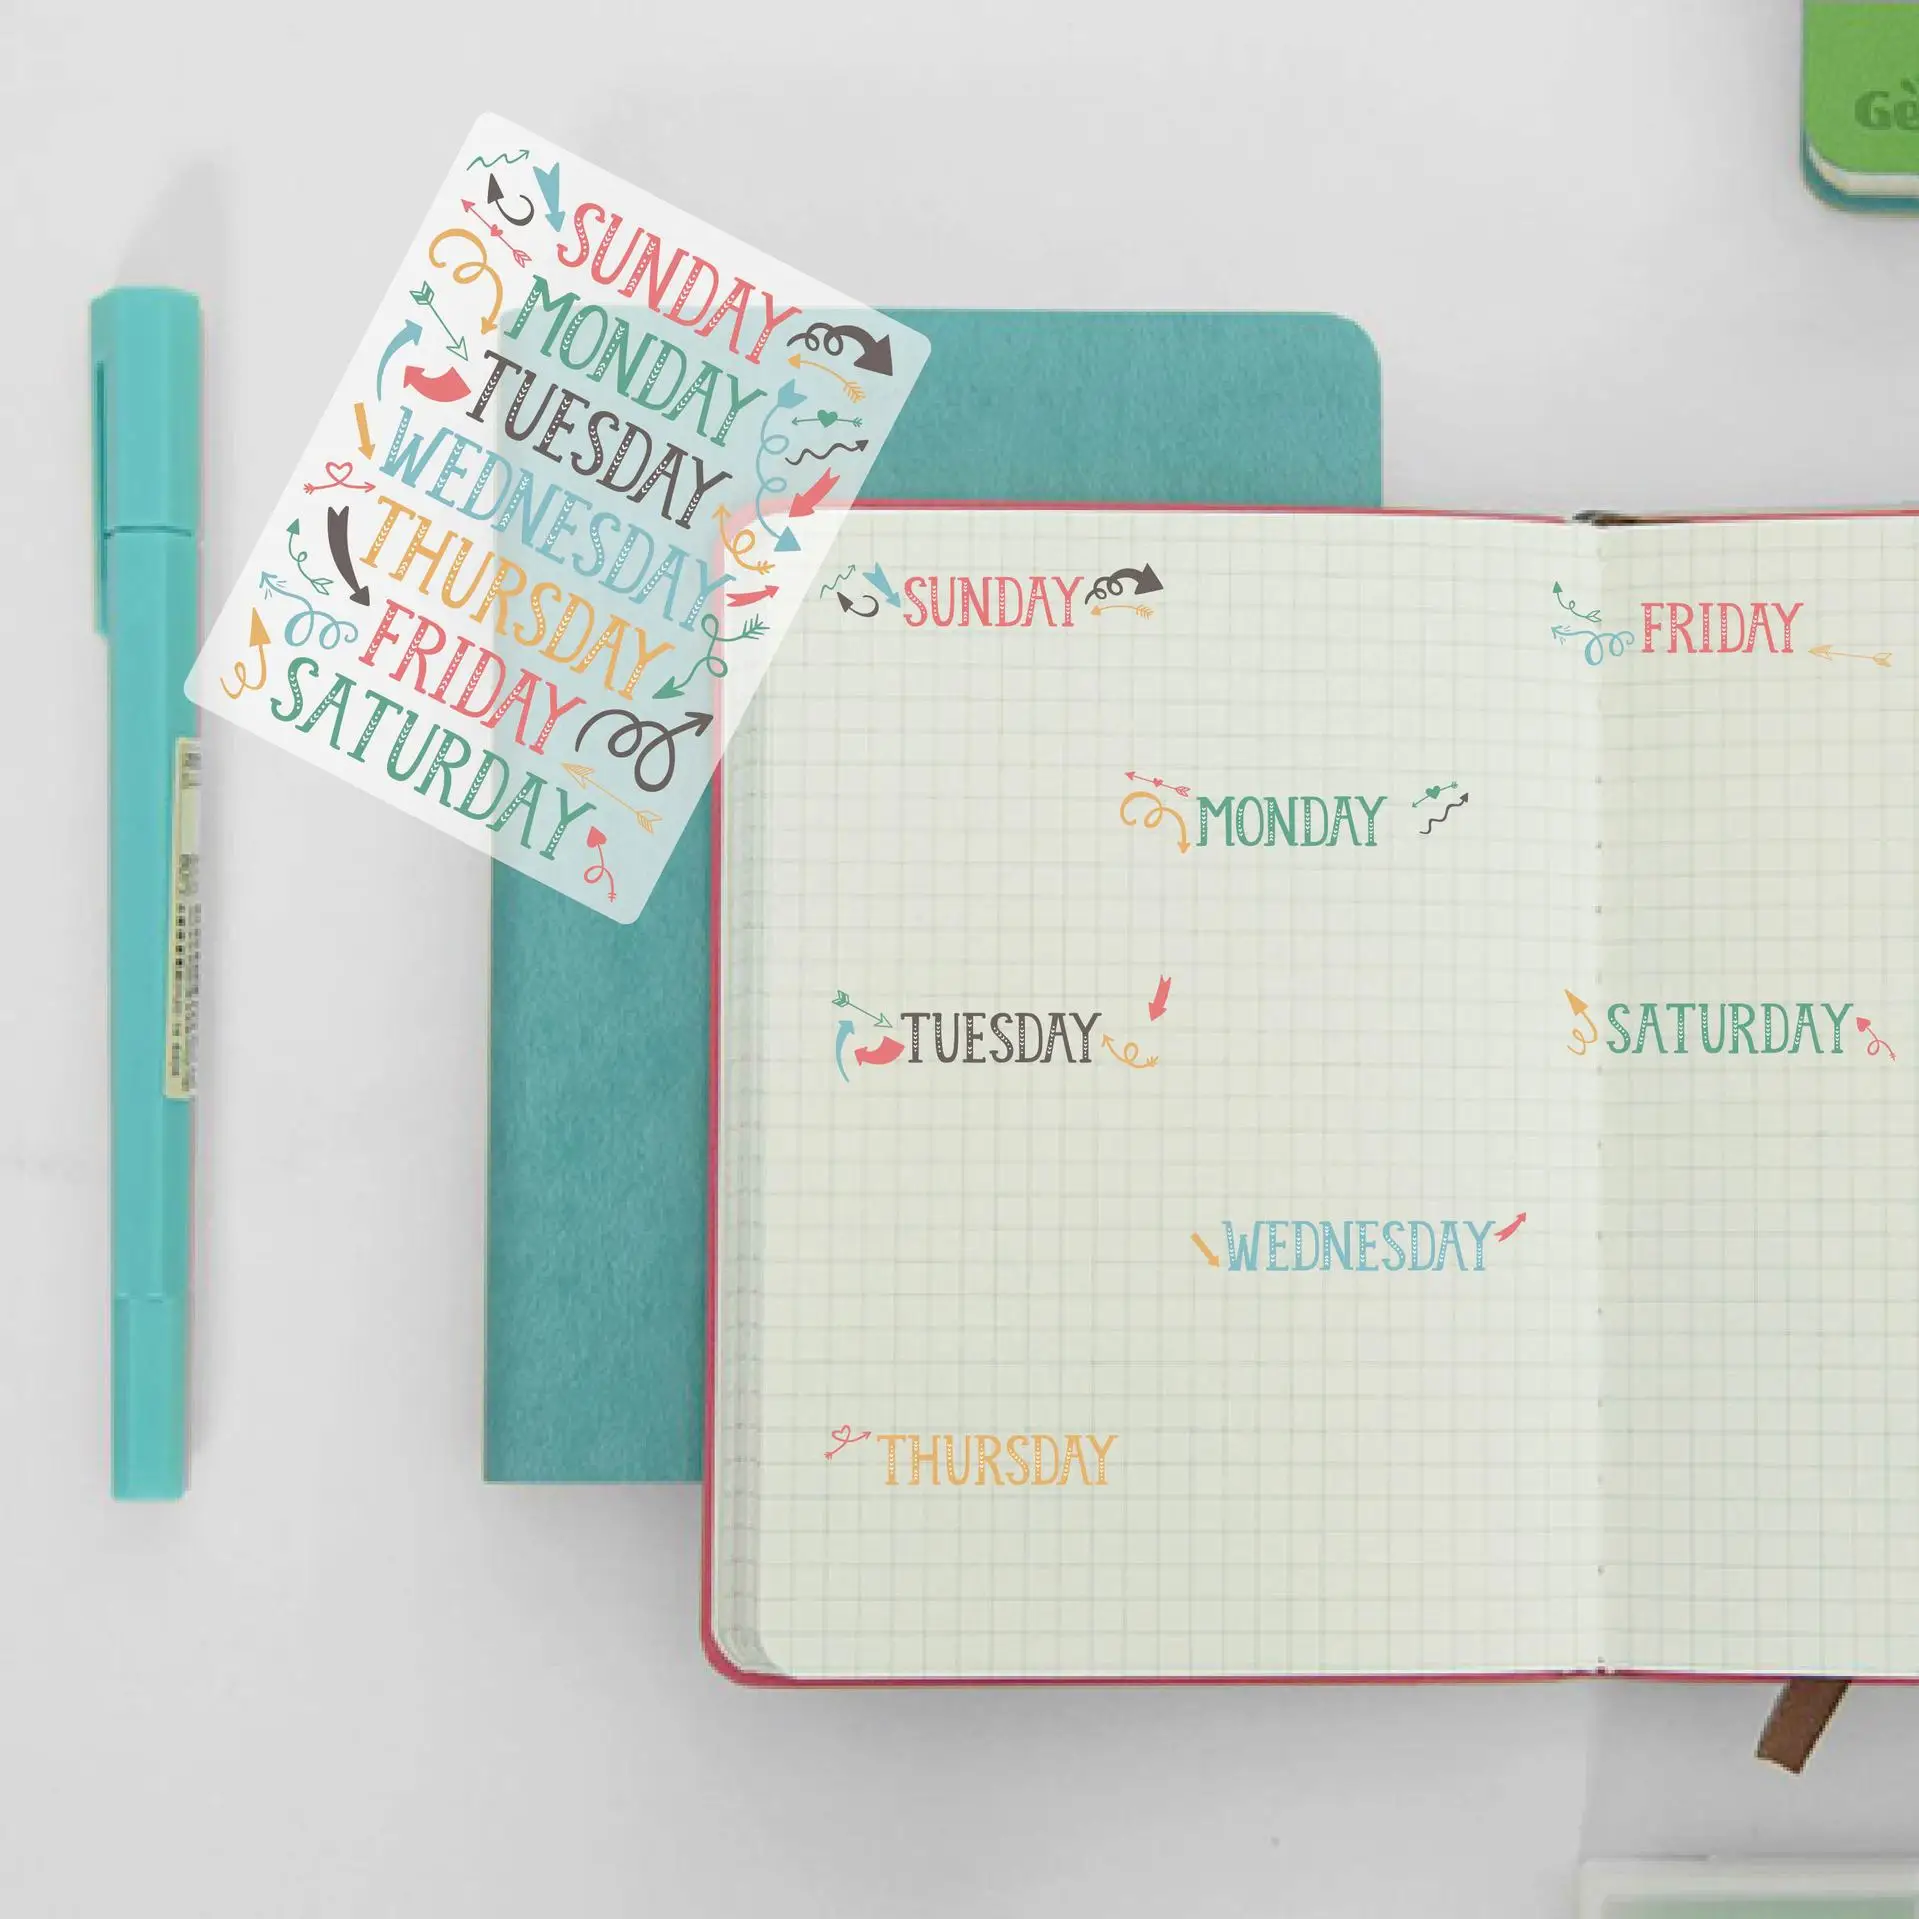 SUNDAY
MONDAY
TUESDAY
WEDNESDAY
THURSDAY
FRIDAY
SATURDAY
SUNDAY
MONDAY
TUESDAY
WEDNESDAY
THURSDAY
FRIDAY
SATURDAY
Gè